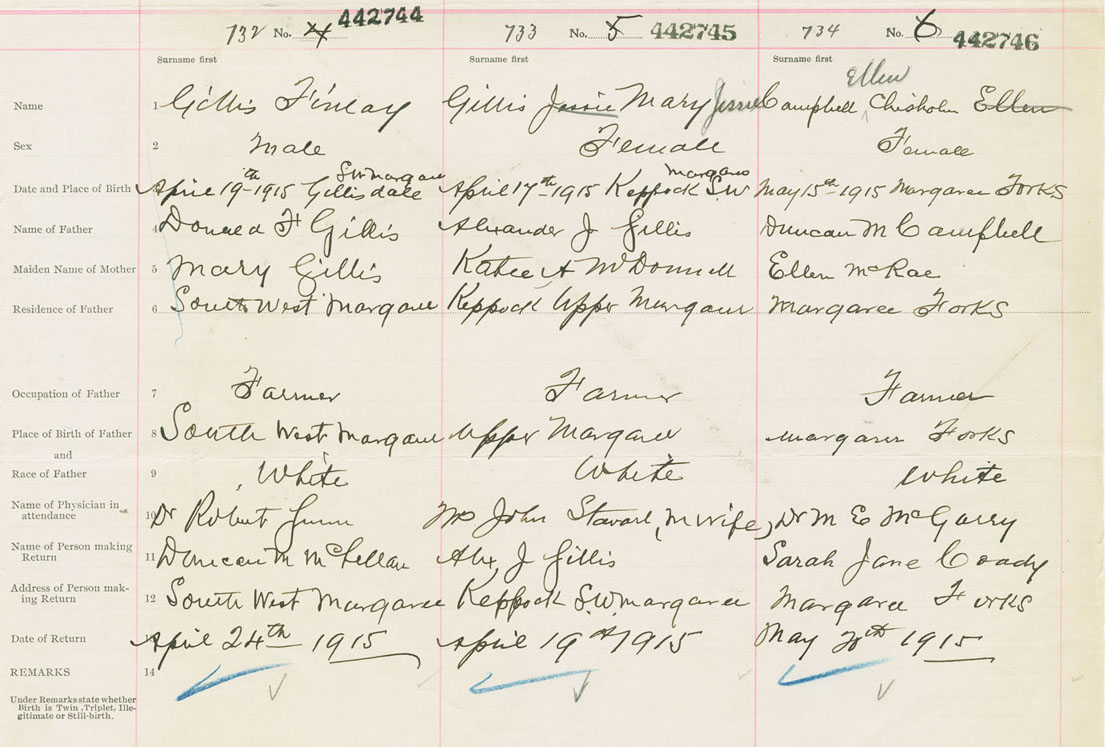 732 No. 4 442744 733 No. 5 442745 734 No. 6 442746
Surname first Surname first Surname first
Ellen
Name 1 Gillis Finlay Gillis Jessie Mary Jessie Campbell Chisholm Ellen
Sex 2 Male Female Female
S.W. Margaree Margaree
Date and Place of Birth April 19th 1915 Gillisdale April 17th 1915 Keppock S.W May 15th 1915 Margaree Forks
Name of Father 4 Donald F Gillis Alexander J Gillis Duncan M Campbell
Maiden Name of Mother 5 Mary Gillis Katie A McDonnell Ellen McRae
Residence of Father 6 South West Margaree Keppock Upper Margaree Margaree Forks
Occupation of Father 7 Farmer Farmer Farmer
Place of Birth of Father 8 South West Margaree Upper Margaree Margaree Forks
and
Race of Father 9 White White White
Name of Physician in attendance 10 Dr Robert Gunn Mrs John Stewart, M wife, Dr M E McGarry
Name of Person making Return 11 Duncan M McLellan Alex, J Gillis Sarah Jane Coady
Address of Person making Return 12 South West Margaree Keppock S.W. Margaree Margaree Forks
Date of Return April 24th 1915 April 19th 1915 May 20th 1915
REMARKS 14
Under Remarks state whether
Birth is Twin, Triplet, Ille-
gitimate or Still-birth.